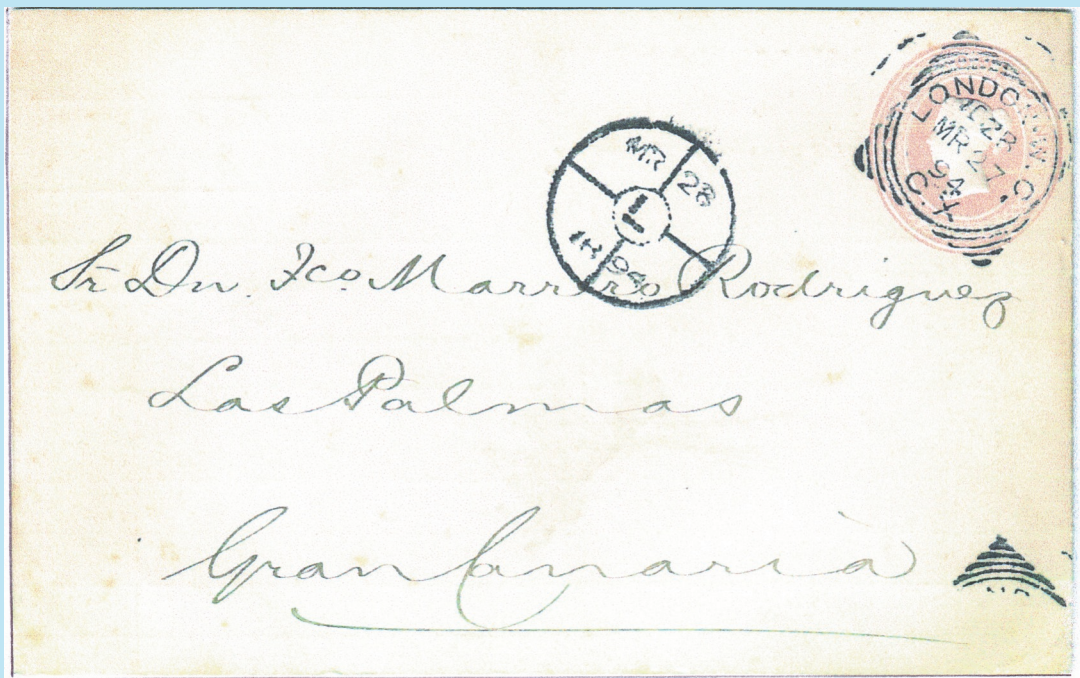 LONDON. W. C.
C. X
MR 27
94
MR 28
L
94
Sr. Dn. Fco. Marrero Rodriguez
Las Palmas
Gran Canaria